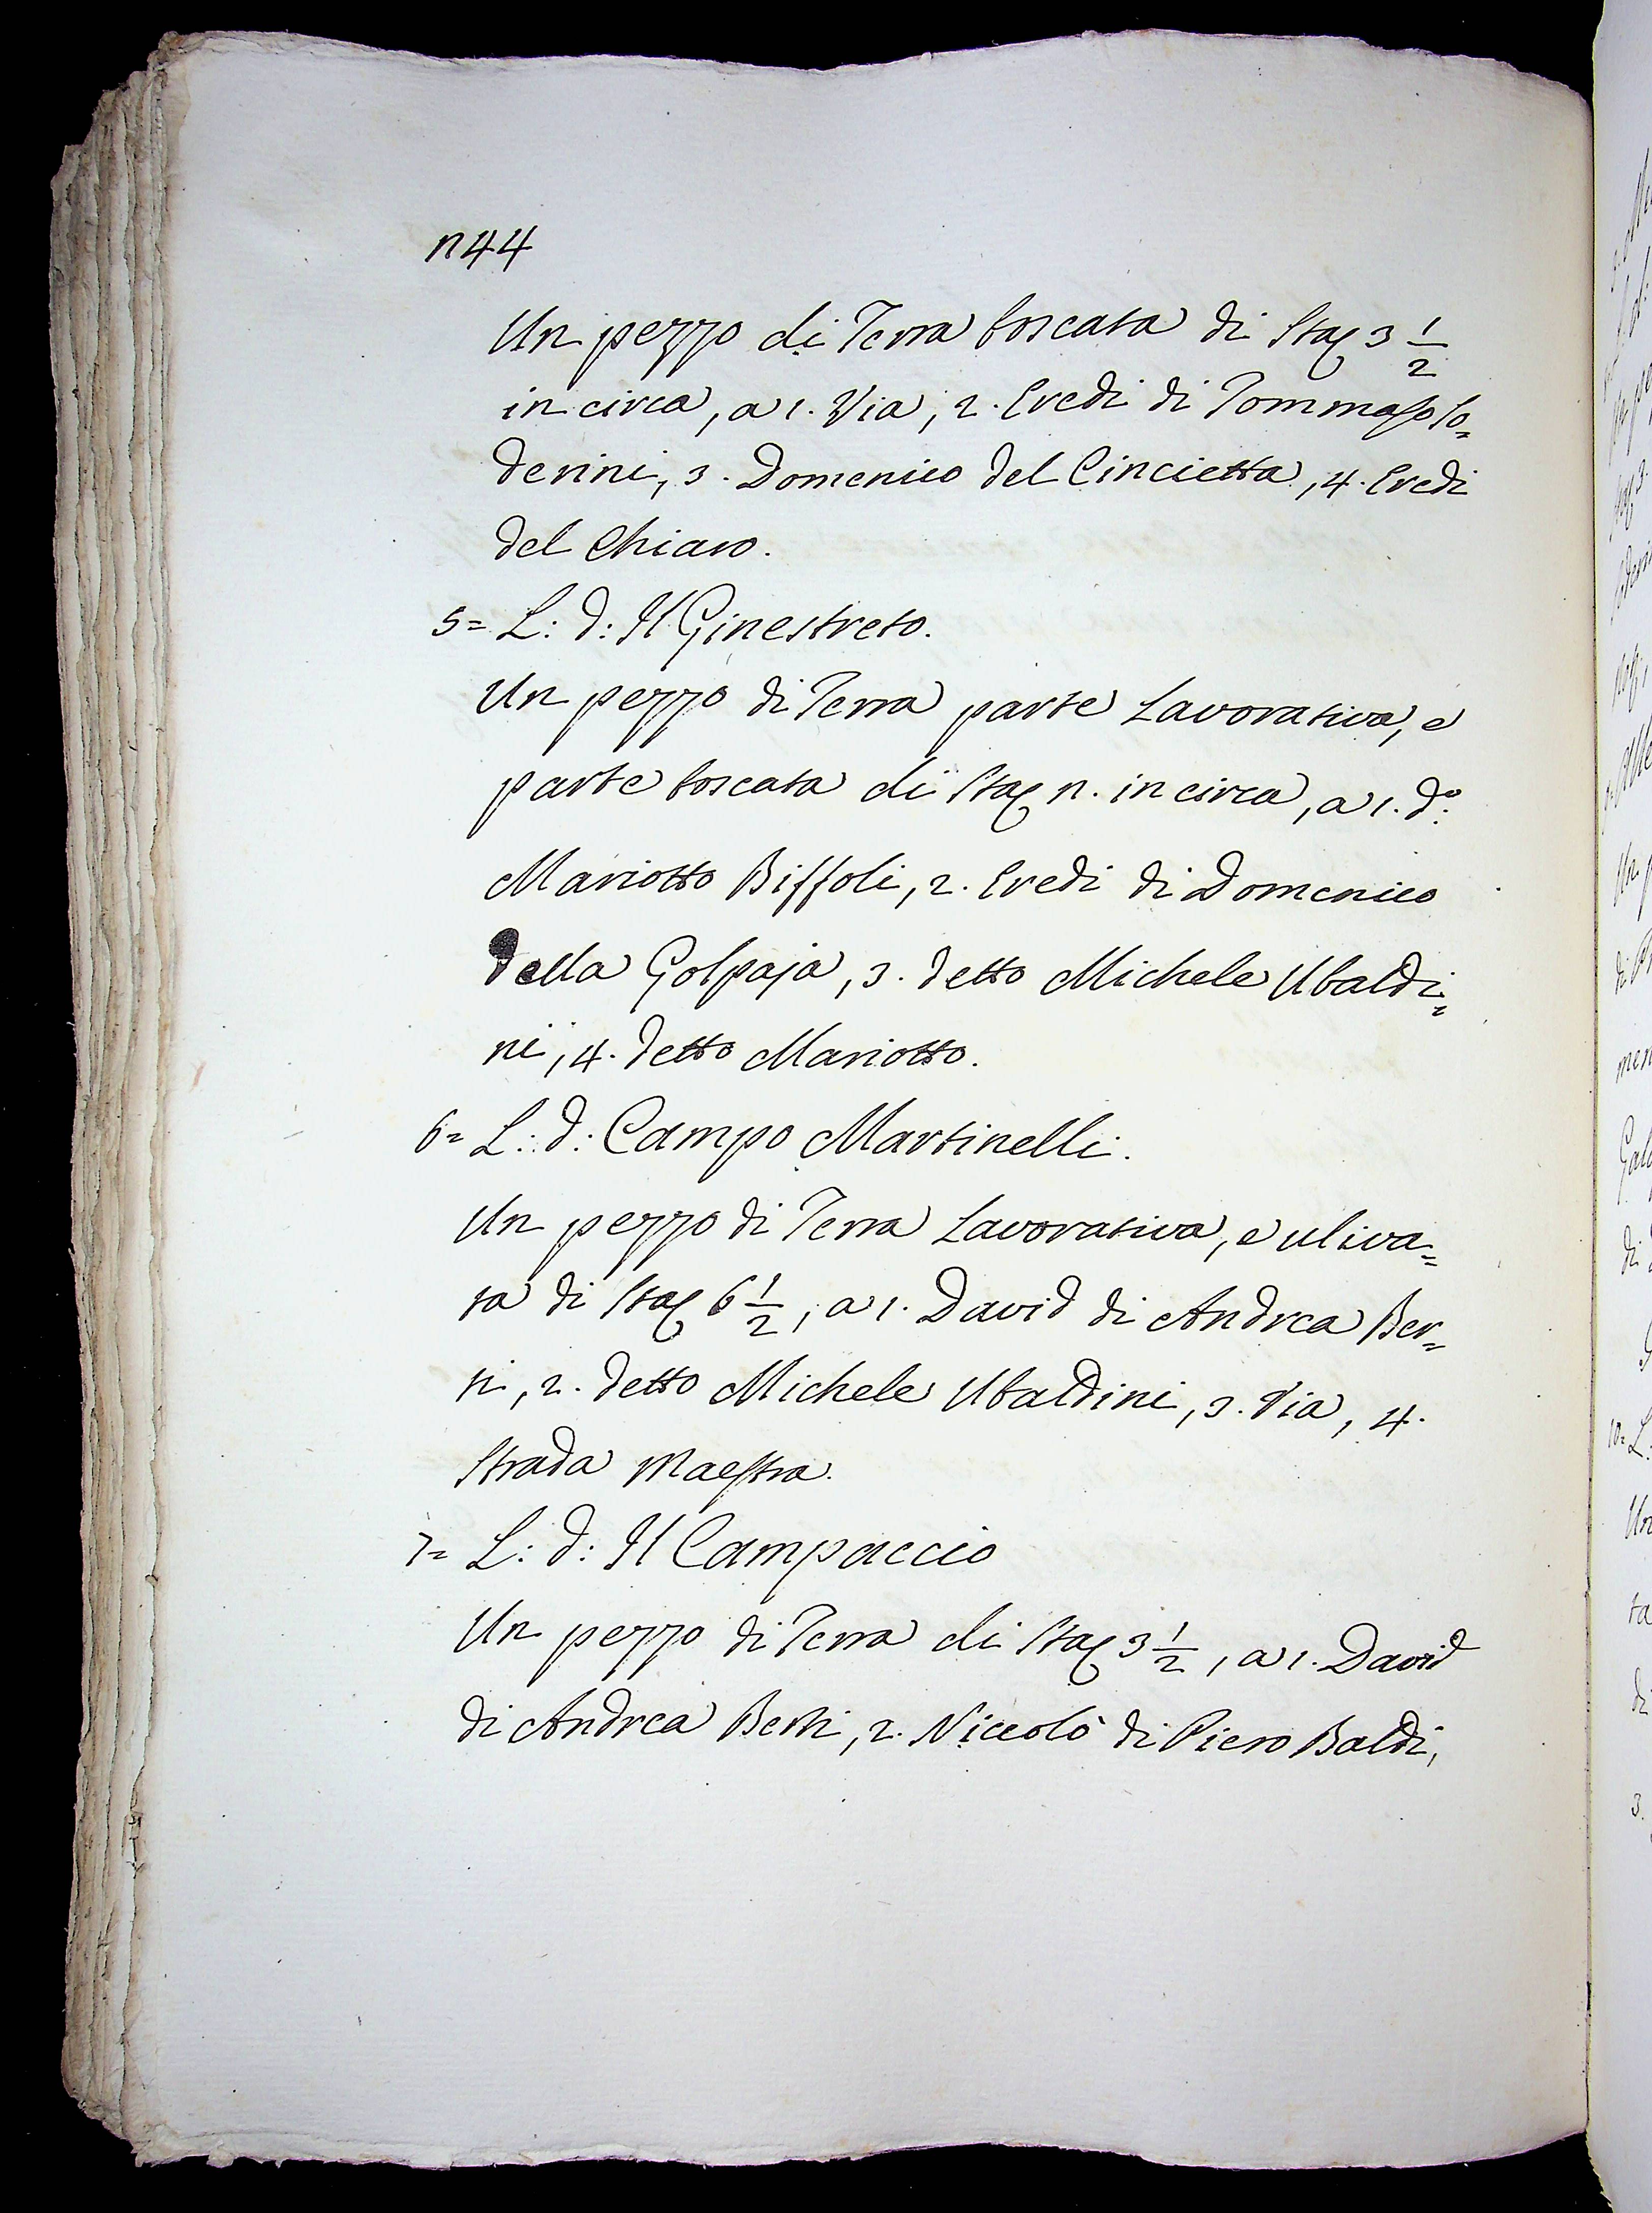 n44
Un pezzo di Terra boscata di Staª 3 1/2
in circa, a 1. Via, 2. Eredi di Tommaso So=
derini, 3. Domenico del Cincietta, 4. Eredi
del Chiaro.
5= L: d: Il Ginestreto.
Un pezzo di Terra parte Lavorativa, e
parte boscata di Staª n. in circa, a 1. d.º
Mariotto Biffoli, 2. Eredi di Domenico
della Golpaja, 3. detto Michele Ubaldi=
ni, 4. detto Mariotto.
6= L: d: Campo Martinelli.
Un pezzo di Terra Lavorativa, e uliva=
ta di Staª 6 1/2, a 1. David di Andrea Ber=
ti, 2. detto Michele Ubaldini, 3. Via, 4.
Strada Maestra.
7= L: d: Il Campaccio
Un pezzo di Terra di Staª 3 1/2, a 1. David
di Andrea Berti, 2. Niccolò di Piero Baldi,